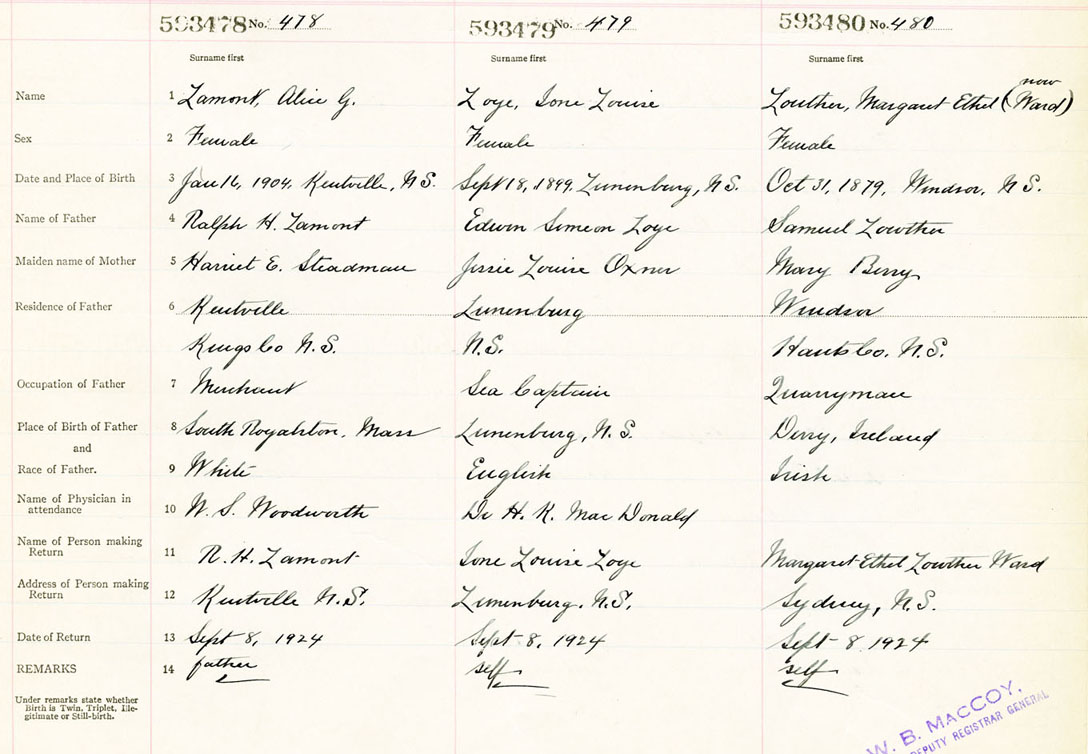 593478 No. 478 593479 No. 479 593480 No. 480
Surname first Surname first Surname first
now
Name 1 Lamont, Alice G. Loye, Ione Louise Lowther, Margaret Ethel (Ward)
Sex 2 Female Female Female
Date and Place of Birth 3 Jan 16, 1904, Kentville, N.S. Sept 18, 1899, Lunenburg, N.S. Oct 31, 1879, Windsor, N.S.
Name of Father 4 Ralph H. Lamont Edwin Simeon Loye Samuel Lowther
Maiden name of Mother 5 Harriet E. Steadman Jessie Louise Oxner Mary Berry
Residence of Father 6 Kentville Lunenburg Windsor
Kings Co N.S. N.S. Hants Co. N.S.
Occupation of Father 7 Merchant Sea Captain Quarryman
Place of Birth of Father 8 South Royalston, Mass Lunenburg, N.S. Derry, Ireland
and
Race of Father. 9 White English Irish
Name of Physician in
attendance 10 W. S. Woodworth Dr H. K. Mac Donald
Name of Person making
Return 11 R. H. Lamont Ione Louise Loye Margaret Ethel Lowther Ward
Address of Person making
Return 12 Kentville N.S. Lunenburg. N.S. Sydney, N.S.
Date of Return 13 Sept 8, 1924 Sept 8, 1924 Sept 8 1924
REMARKS 14 father self self
Under remarks state whether
Birth is Twin, Triplet, Ille-
gitimate or Still-birth.
W. B. MACCOY.
DEPUTY REGISTRAR GENERAL